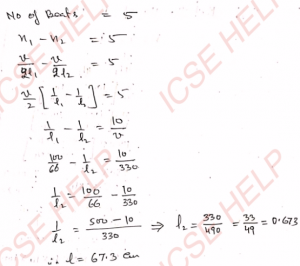 No of Beats = 5
n₁ - n₂ = 5
v/2l₁ - v/2l₂ = 5
v/2 [1/l₁ - 1/l₁] = 5
1/l₁ - 1/l₂ = 10/v
100/66 - 1/l₂ = 10/330
1/l₂ = 100/66 - 10/330
1/l₂ = 500 - 10/330 ⇒ l₂ = 330/490 = 33/49 = 0.673
∴ l = 67.3 cm
ICSE HELP
ICSE HELP
ICSE HELP
ICSE HELP